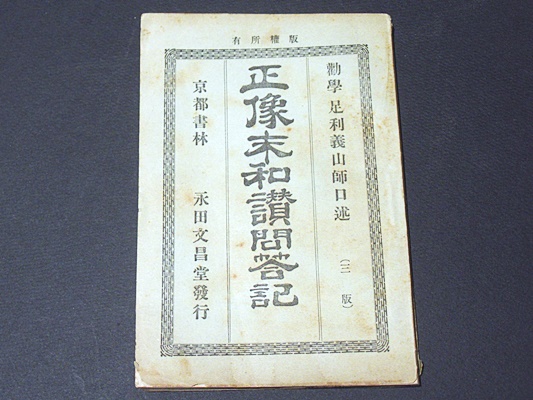 有所權版
勸學 足利義山師口述 (三版)
正像末和讃問答記
京都書林 永田文昌堂發行